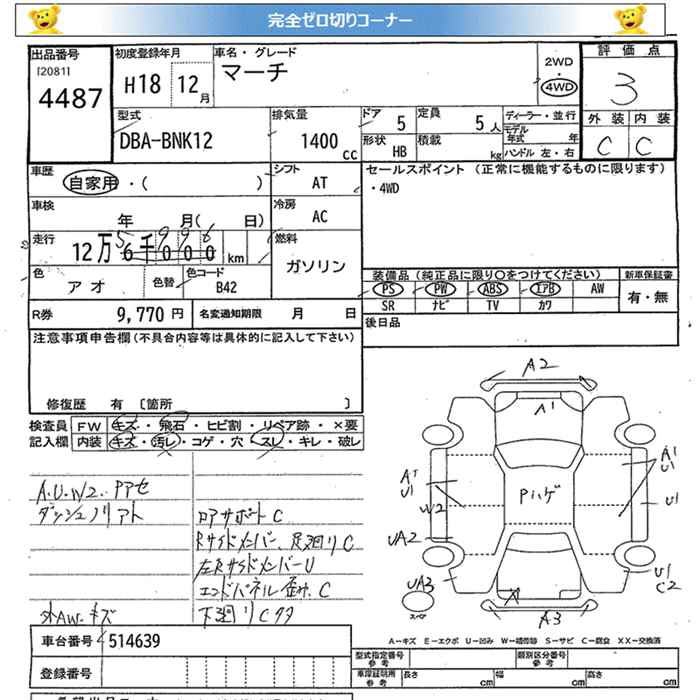 完全ゼロ切りコーナー
出品番号 初度登録年月 車名・グレード 評価点
[2081] 4487 H18 12月 マーチ 2WD・4WD 3
型式 排気量 ドア 5 定員 5人 ディーラー・並行 外装 内装
DBA-BNK12 1400cc 形状 HB 積載 kg モデル年式 年 ハンドル 左・右 C C
車歴 自家用・( ) シフト AT セールスポイント (正常に機能するものに限ります)
・4WD
車検 年 月( 日) 冷房 AC
走行 12万5千996 6 000 km 燃料 ガソリン
色 アオ 色替 色コード B42 装備品 (純正品に限り○をつけてください) 新車保証書
PS PW ABS エアB AW 有・無
SR ナビ TV カワ
R券 9,770円 名変通知期限 月 日 後日品
注意事項申告欄(不具合内容等は具体的に記入して下さい)
修復歴 有 [箇所 ]
検査員記入欄 FW キズ・飛石・ヒビ割・リペア跡・×要
内装 キズ・汚レ・コゲ・穴・スレ・キレ・破レ
A.U.W2.
ロアサポートC
Rサイドメンバー、足廻りC
左Rサイドメンバー U
エンドパネル歪み、C
外AW.キズ 下廻りCクタ
A2
A1
A1 U1
A1 U1
Pハゲ
W2
U1
UA2
UA3
U1 C2
スペア
A
A3
A-キズ E-エクボ U-凹み W-補修跡 S-サビ C-腐食 XX-交換済
車台番号 514639
登録番号
型式指定番号 参考 類別区分番号 参考
車庫証明用 参考 長さ cm 幅 cm 高さ cm